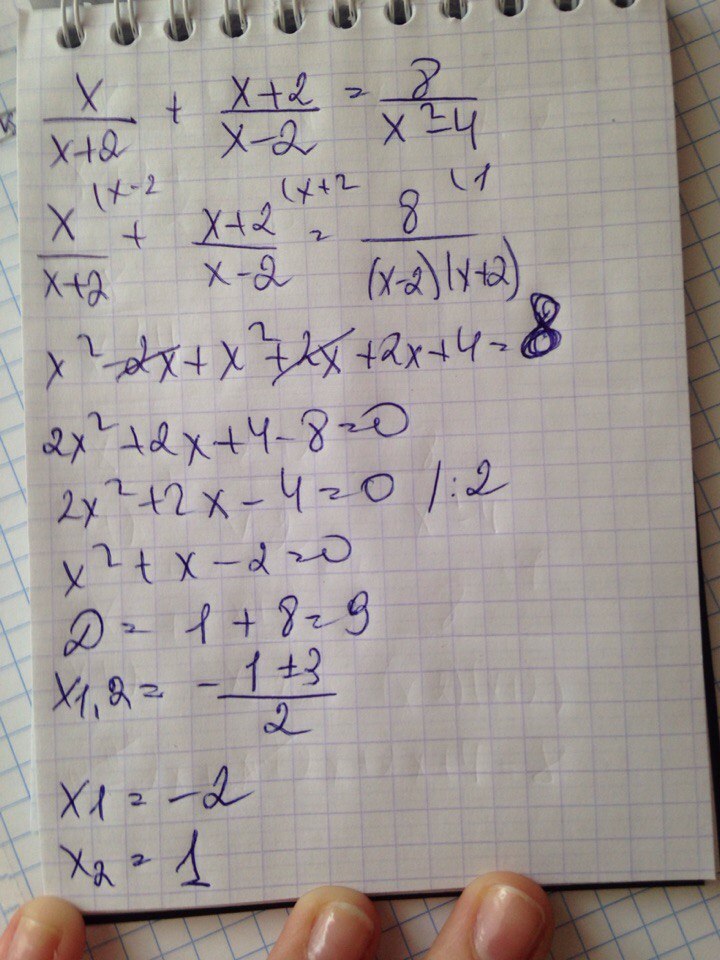 x/(x+2) + (x+2)/(x-2) = 8/(x²-4)
x/(x+2) (x-2 + (x+2)/(x-2) (x+2 = 8/((x-2)(x+2)) (1
x² - 2x + x² + 2x + 2x + 4 = 8
2x² + 2x + 4 - 8 = 0
2x² + 2x - 4 = 0 /:2
x² + x - 2 = 0
D = 1 + 8 = 9
x1,2 = -(1 ± 3)/2
x1 = -2
x2 = 1